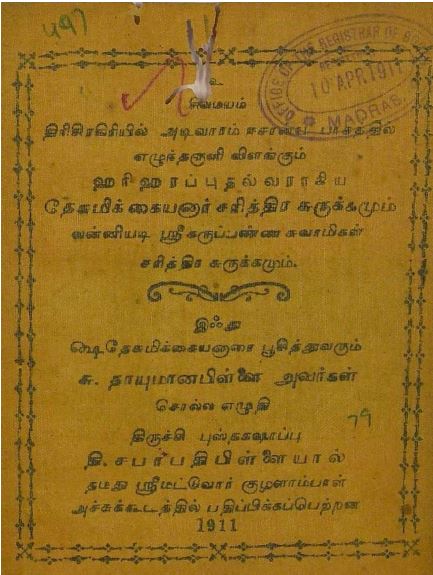 497
OFFICE OF THE REGISTRAR OF BOOKS
10 APR. 1911
MADRAS
உ
சிவமயம்
திரிசிரகிரியில் அடிவாரம் ஈசானிய பாகத்தில்
எழுந்தருளி விளங்கும்
ஹரிஹரப்புதல்வராகிய
தேசுமிக்கையனார் சரித்திர சுருக்கமும்
வன்னியடி ஸ்ரீகருப்பண்ண சுவாமிகள்
சரித்திர சுருக்கமும்.
இஃது
ஷெதேசுமிக்கையனாரை பூசித்துவரும்
சு. தாயுமானபிள்ளை அவர்கள்
சொல்ல எழுதி
79
திருச்சி புஸ்தகஷாப்பு
தி. சபாபதிபிள்ளையால்
தமது ஸ்ரீமட்டுவோர் குழளாம்பாள்
அச்சுக்கூடத்தில் பதிப்பிக்கப்பெற்றன
1911